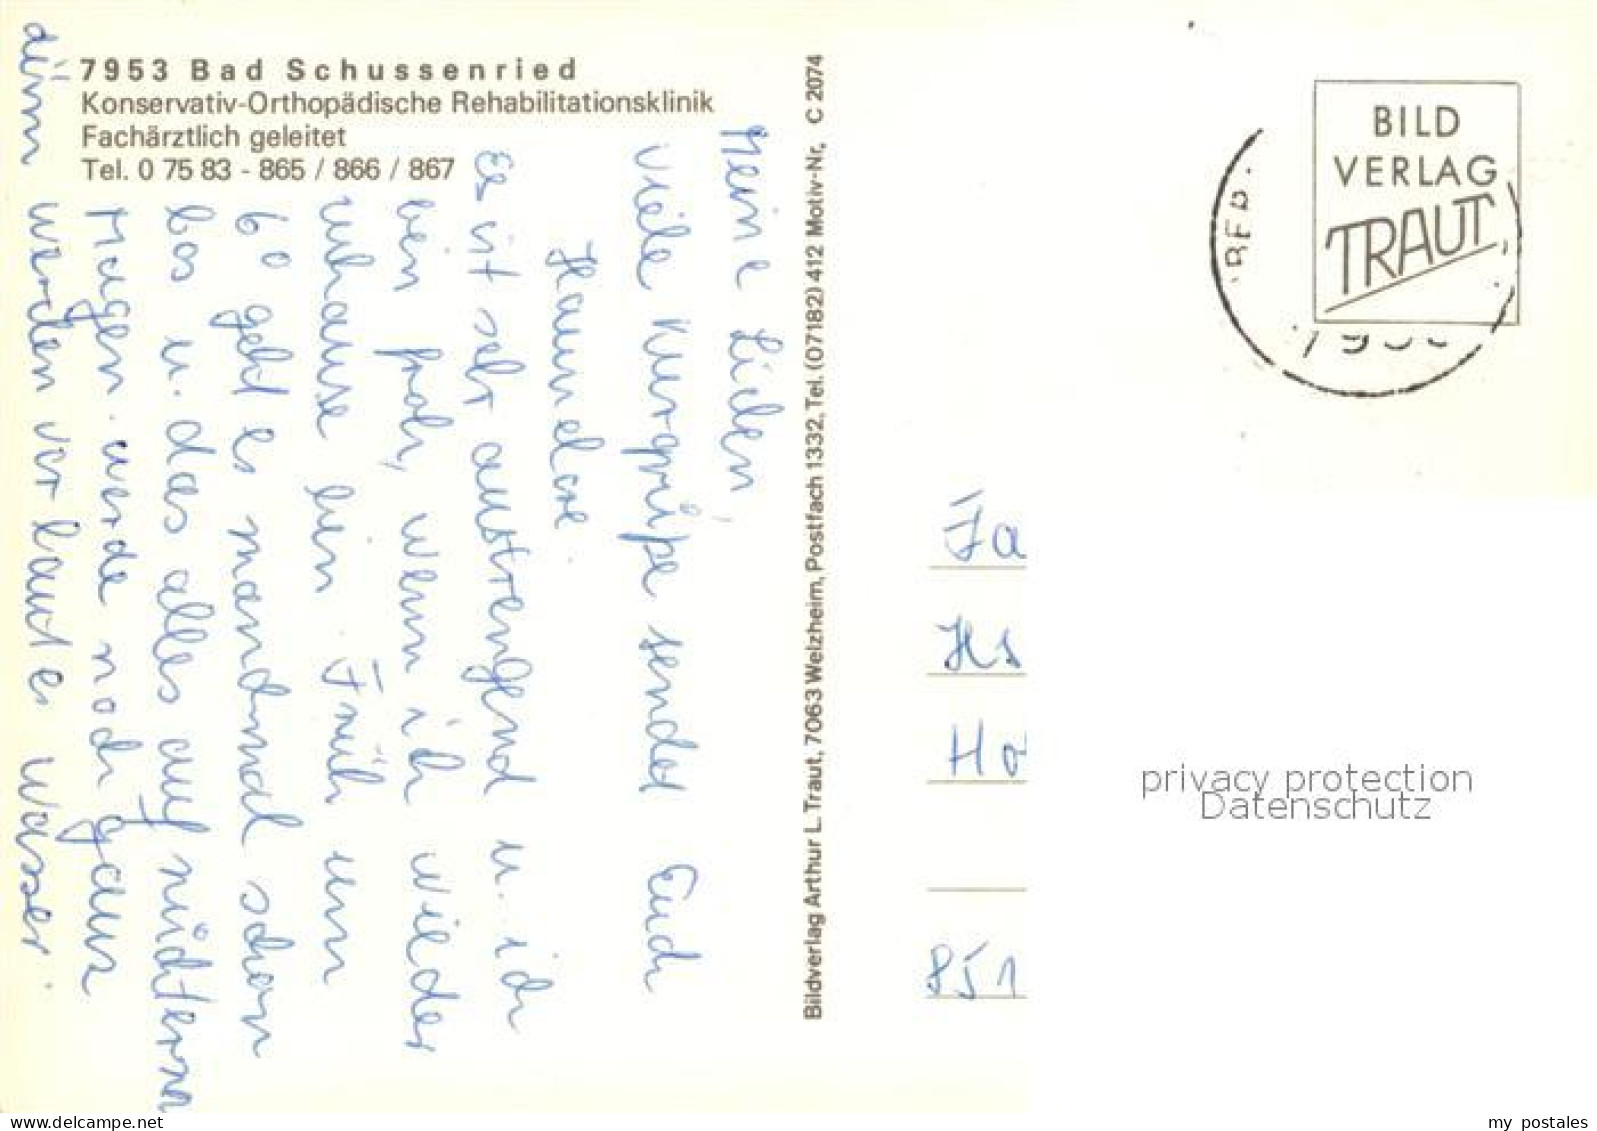 7953 Bad Schussenried
Konservativ-Orthopädische Rehabilitationsklinik
Fachärztlich geleitet
Tel. 0 75 83 - 865 / 866 / 867
Meine Lieben,
viele Kurgrüße sendet Euch
Hannelore.
Es ist sehr anstrengend u. ich
bin froh, wenn ich wieder
zuhause bin. Früh um
6° geht es manchmal schon
los u. das alles auf nüchternen
Magen. werde noch ganz
dünn werden vor lauter Wasser.
Bildverlag Arthur L. Traut, 7063 Welzheim, Postfach 1332, Tel. (07182) 412 Motiv-Nr. C 2074
BILD
VERLAG
TRAUT
Fa
Hs
Ho
851
privacy protection
Datenschutz
www.delcampe.net
my_postales